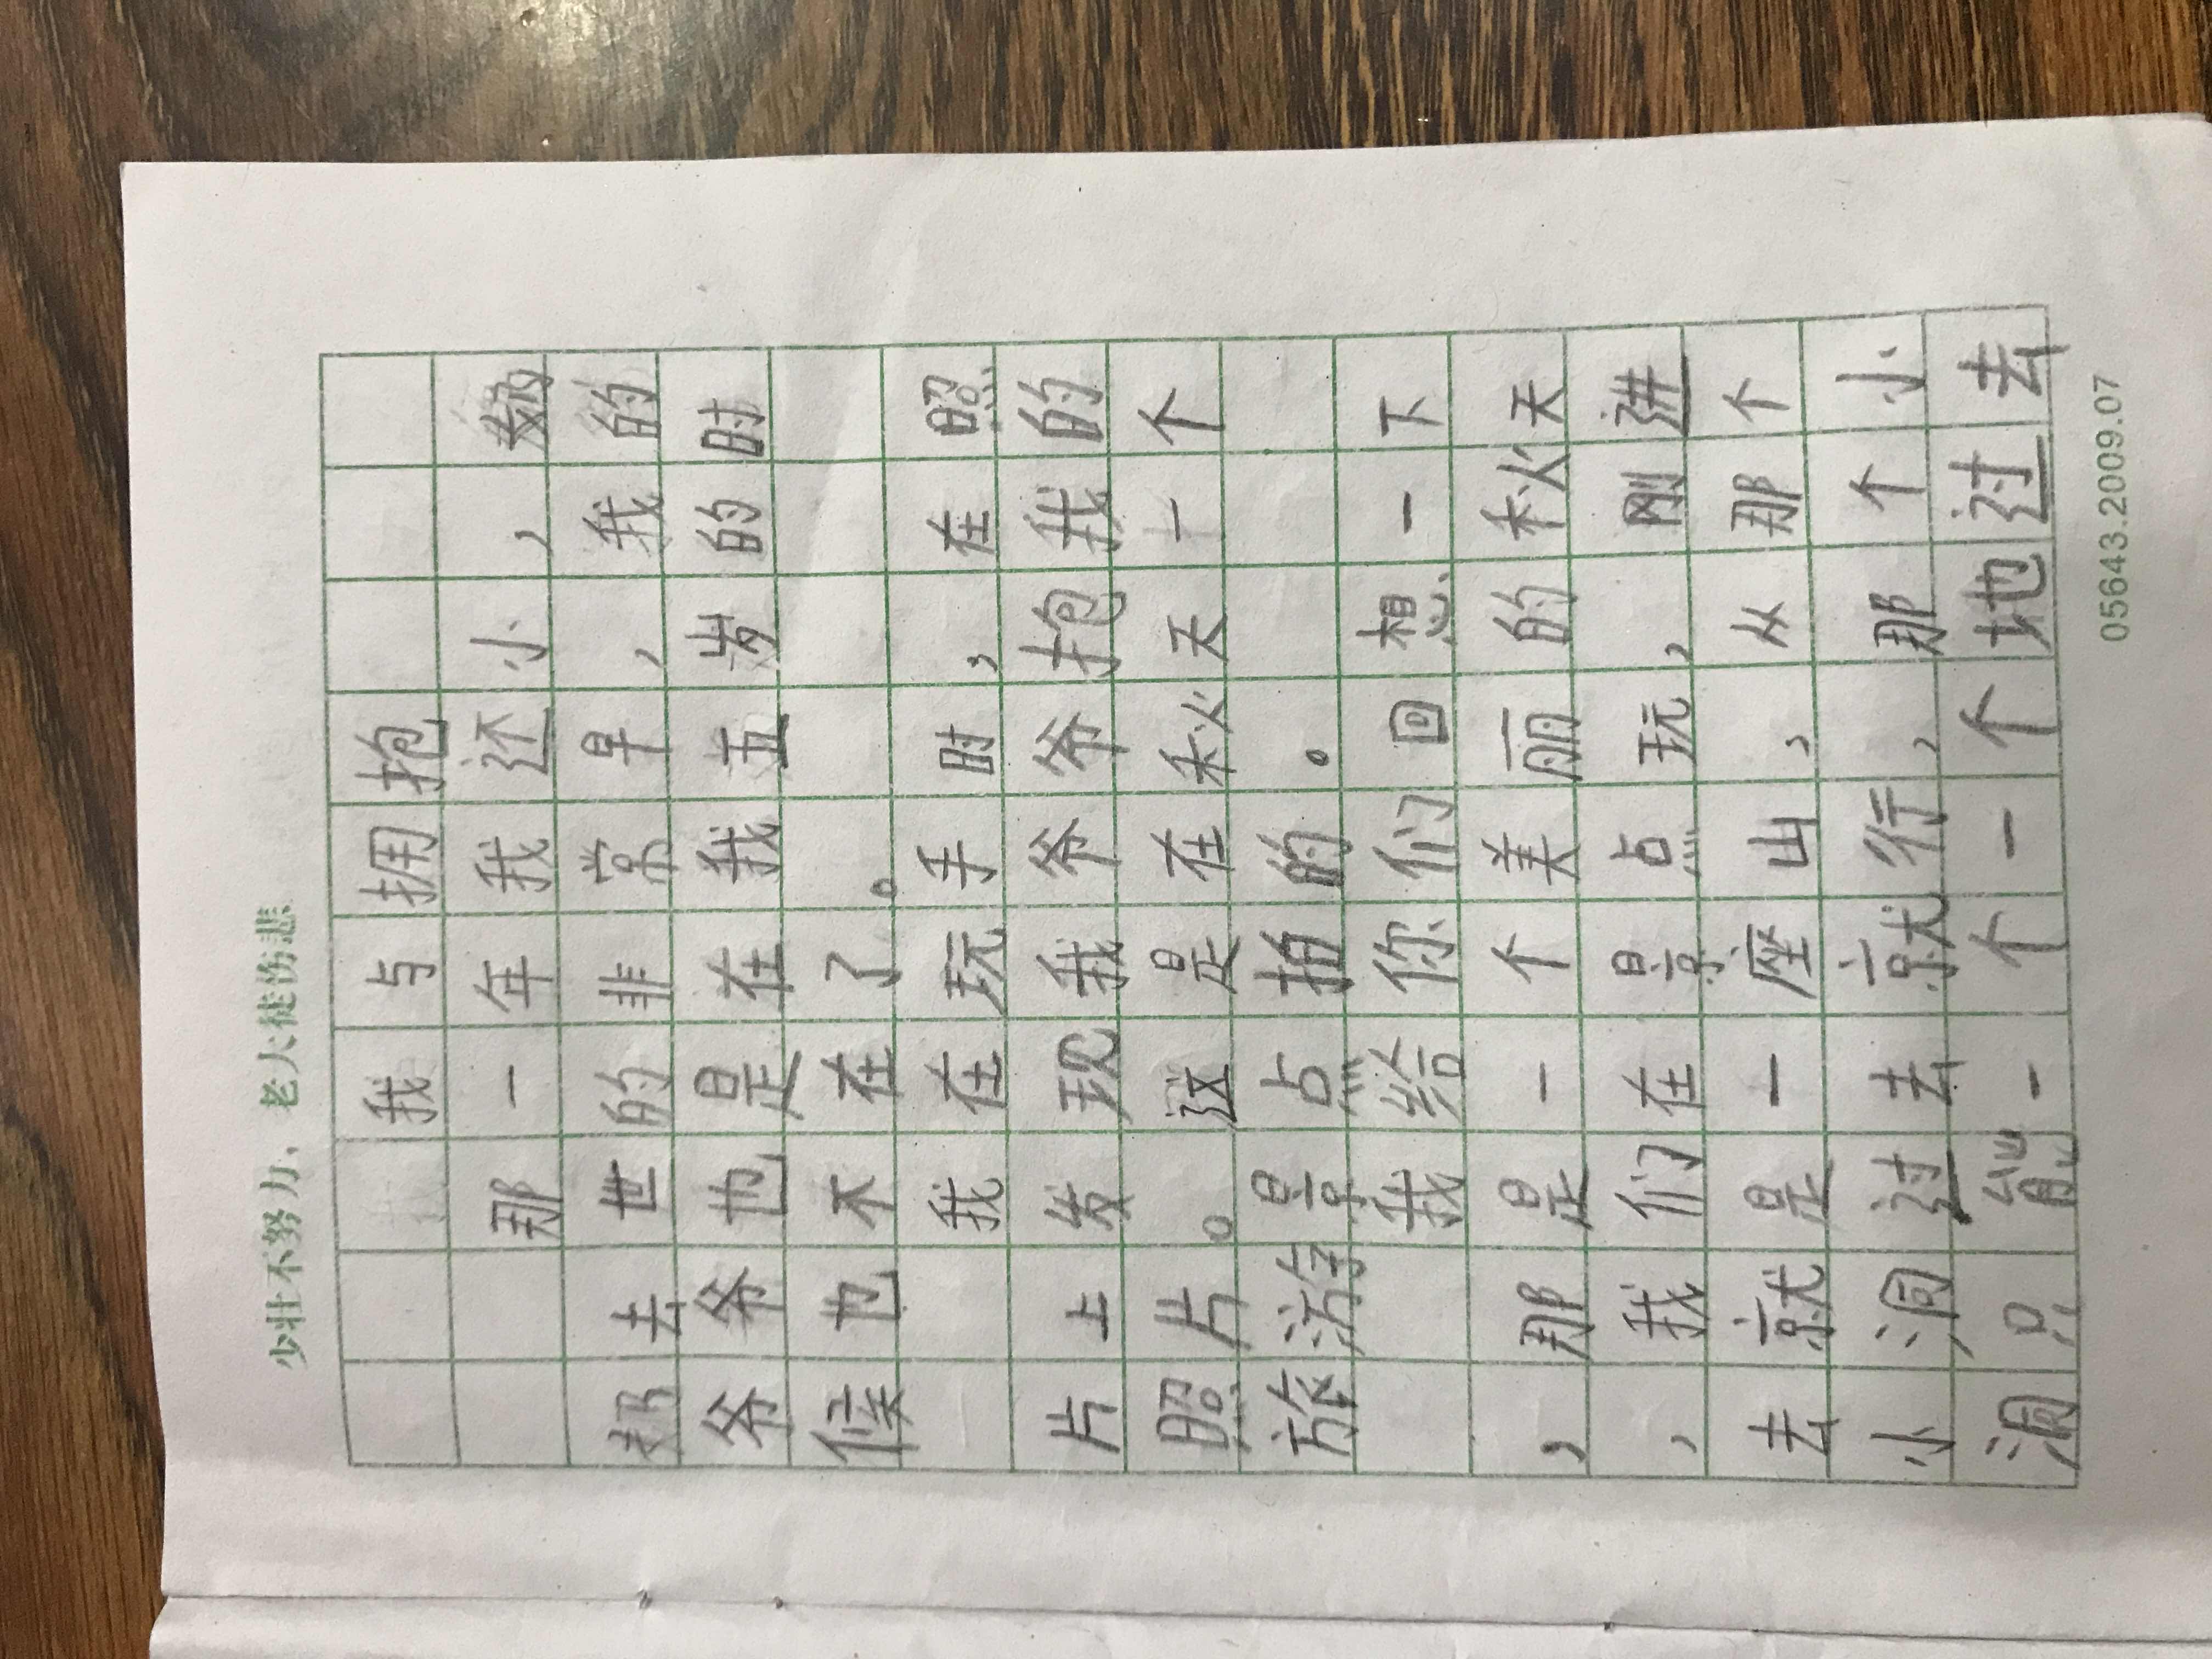 少壮不努力，老大徒伤悲
我与拥抱
那一年我还小，
去世的非常早，我的
爷爷也是在我五岁的时
候也不在了。
我在玩手时，在照
片上发现我爷爷抱我的
照片。这是在秋天一个
旅游景点拍的。
我给你们回想一下
，那是一个美丽的秋天
，我们在景点玩，刚进
去就是一座山，从那个
小洞过去就行，那个小
洞只能一个一个地过去
05643.2009.07